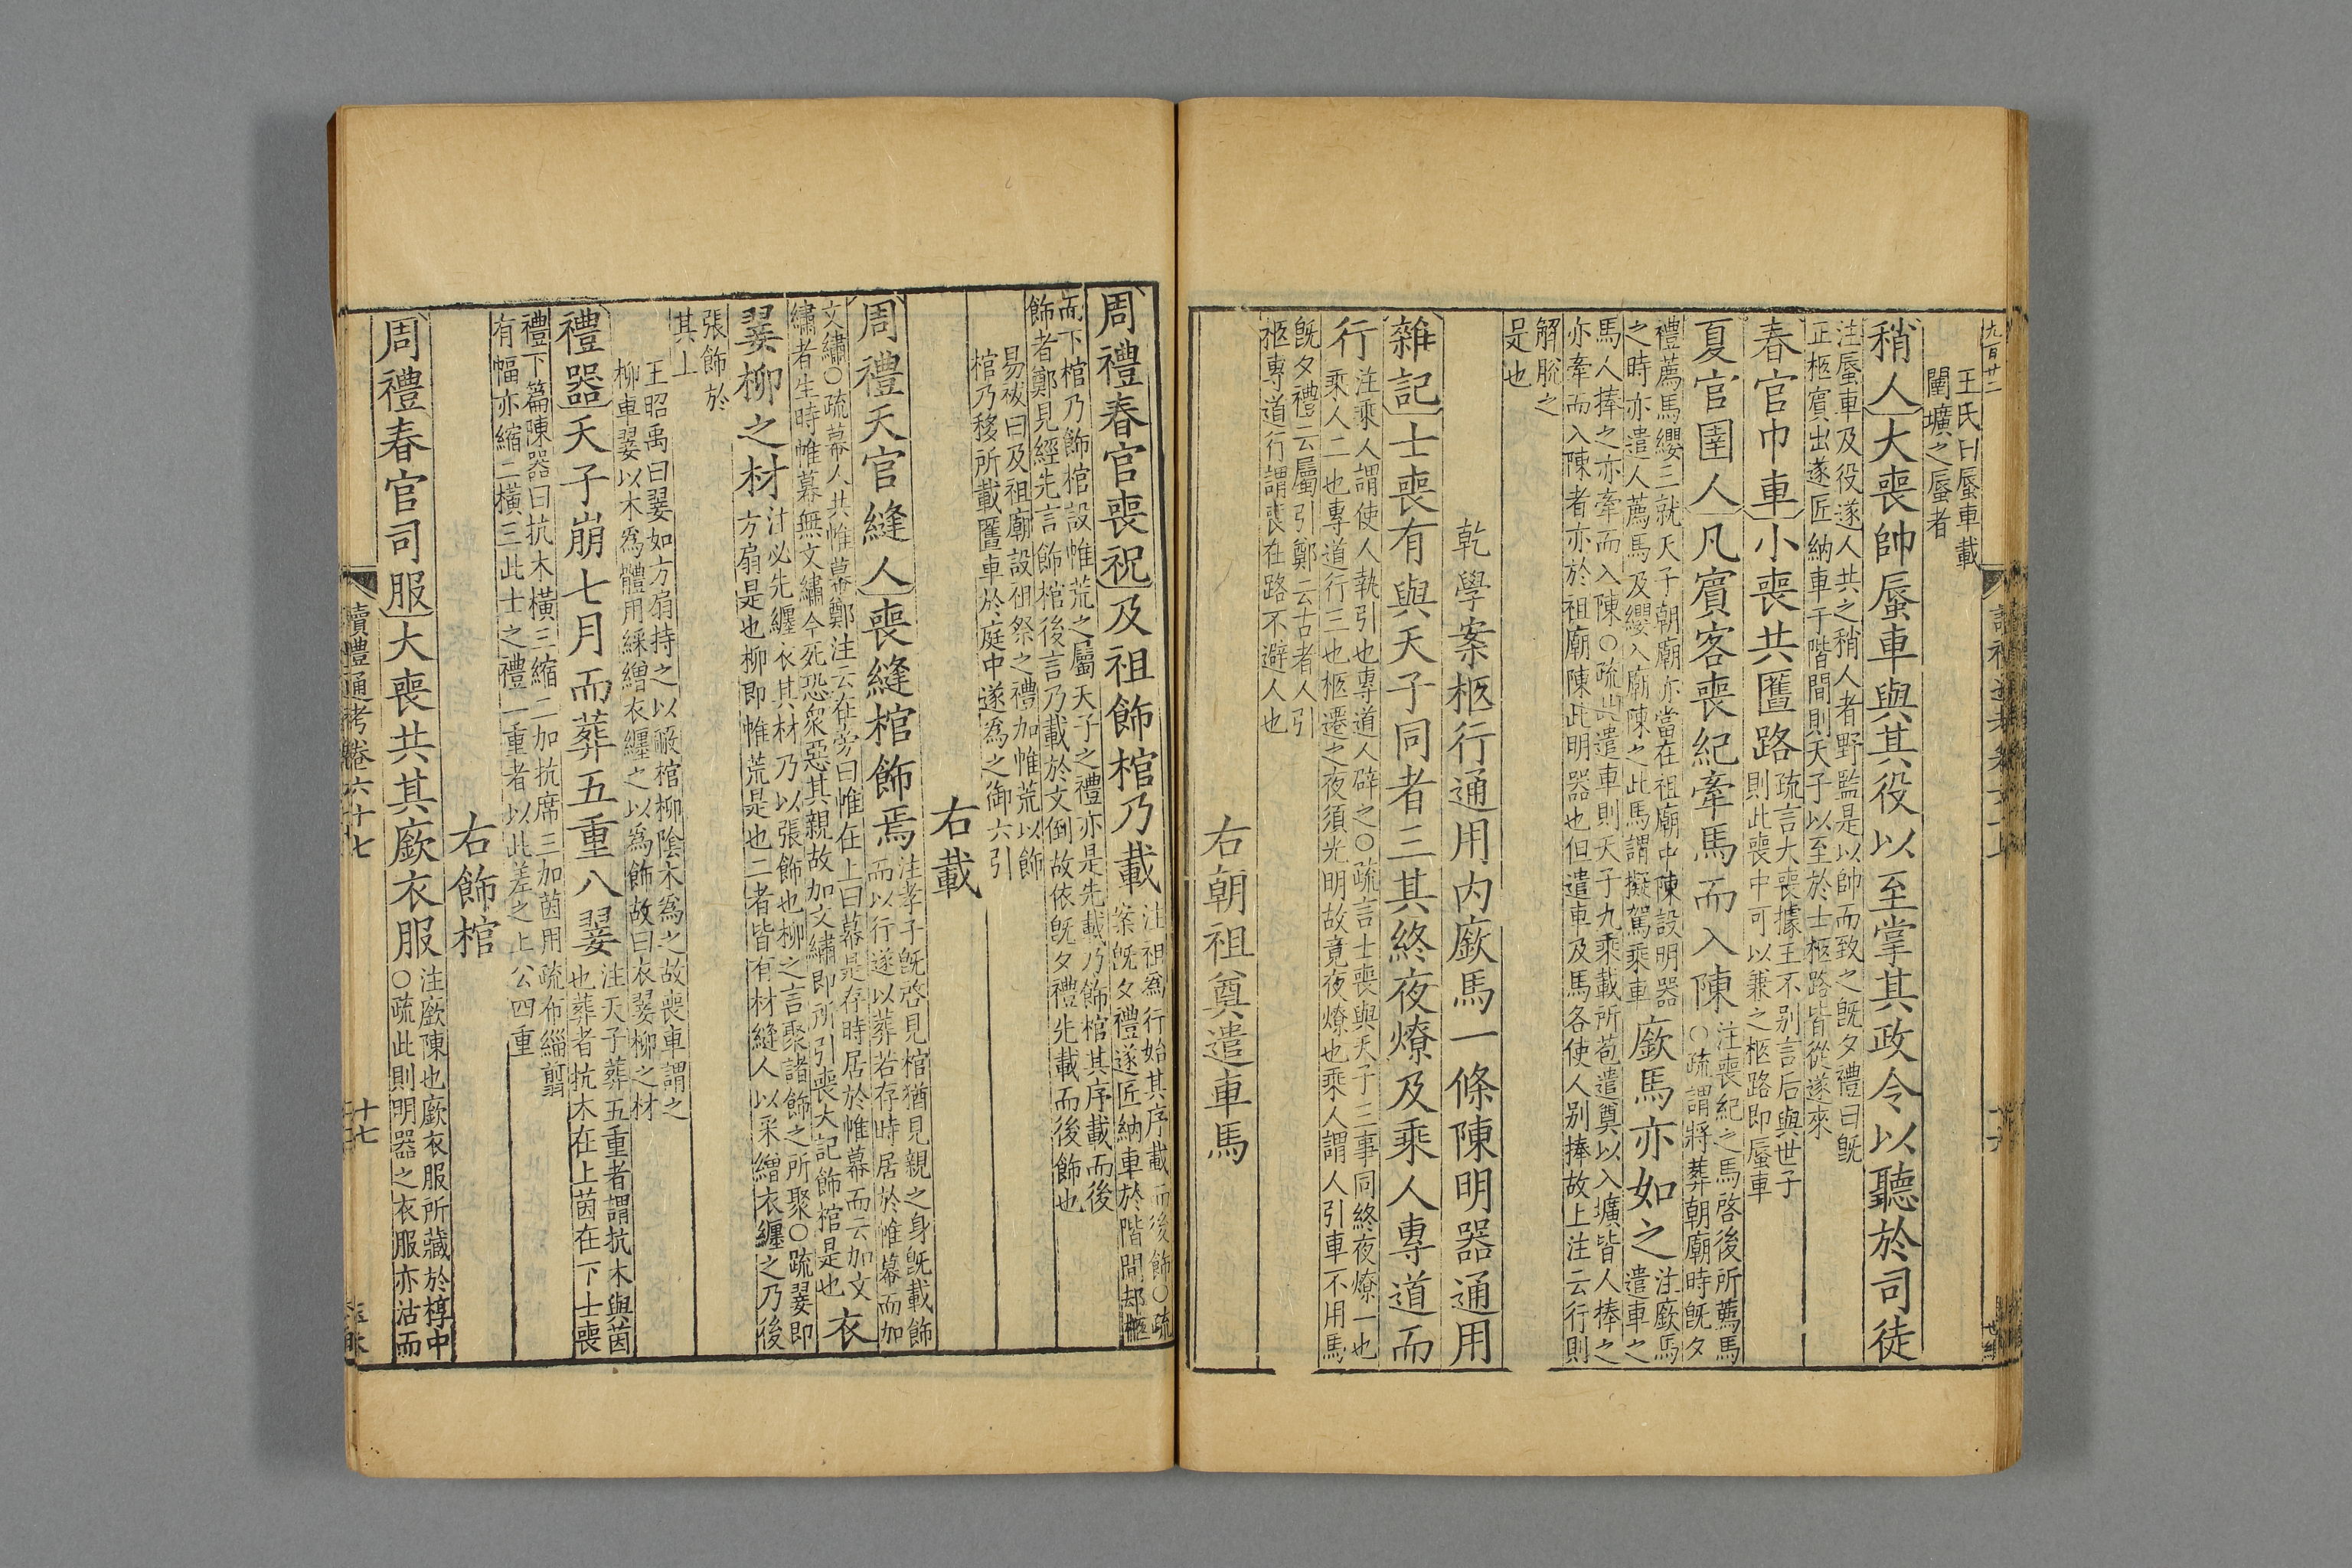 九百廿二
王氏曰蜃車載
闉壙之蜃者
稍人大喪帥蜃車與其役以至掌其政令以聽於司徒
注蜃車及役遂人共之稍人者野監是以帥而致之旣夕禮曰旣
正柩賓出遂匠納車于階間則天子以至於士柩路皆從遂來
春官巾車小喪共匶路
疏言大喪據王不别言后與世子
則此喪中可以兼之柩路即蜃車
夏官圉人凡賓客喪紀牽馬而入陳
注喪紀之馬啓後所薦馬
○疏謂將葬朝廟時旣夕
禮薦馬纓三就天子朝廟亦當在祖廟中陳設明器
之時亦遣人薦馬及纓入廟陳之此馬謂擬駕乘車
廞馬亦如之
注廞馬
遣車之
馬人捧之亦牽而入陳○疏此遣車則天子九乘載所苞遣奠以入壙皆人捧之
亦牽而入陳者亦於祖廟陳此明器也但遣車及馬各使人别捧故上注云行則
解脫之
是也
乾學案柩行通用内廞馬一條陳明器通用
雜記士喪有與天子同者三其終夜燎及乘人專道而
行
注乘人謂使人執引也專道人辟之○疏言士喪與天子三事同終夜燎一也
乘人二也專道行三也柩遷之夜須光明故竟夜燎也乘人謂人引車不用馬
旣夕禮云屬引鄭云古者人引
柩專道行謂喪在路不避人也
右朝祖奠遣車馬
周禮春官喪祝及祖飾棺乃載
注祖爲行始其序載而後飾○疏
案旣夕禮遂匠納車於階間却柩
而下棺乃飾棺設帷荒之屬天子之禮亦是先載乃飾棺其序載而後
飾者鄭見經先言飾棺後言乃載於文倒故依旣夕禮先載而後飾也
易祓曰及祖廟設祖祭之禮加帷荒以飾
棺乃移所載匶車於庭中遂爲之御六引
右載
周禮天官縫人喪縫棺飾焉
注孝子旣啓見棺猶見親之身旣載飾
而以行遂以葬若存時居於帷幕而加
文繡○疏幕人共帷幕鄭注云在旁曰帷在上曰幕是存時居於帷幕而云加文
繡者生時帷幕無文繡今死恐衆惡其親故加文繡即所引喪大記飾棺是也
衣
翣柳之材
注必先纏衣其材乃以張飾也柳之言聚諸飾之所聚○疏翣即
方扇是也柳即帷荒是也二者皆有材縫人以采繒衣纏之乃後
張飾於
其上
王昭禹曰翣如方扇持之以蔽棺柳陰木爲之故喪車謂之
柳車翣以木爲體用綵繒衣纏之以爲飾故曰衣翣柳之材
禮器天子崩七月而葬五重八翣
注天子葬五重者謂抗木與茵
也葬者抗木在上茵在下士喪
禮下篇陳器曰抗木橫三縮二加抗席三加茵用疏布緇翦
有幅亦縮二橫三此士之禮一重者以此差之上公四重
右飾棺
周禮春官司服大喪共其廞衣服
注廞陳也廞衣服所藏於椁中
○疏此則明器之衣服亦沽而
讀禮通考卷六十七
十七